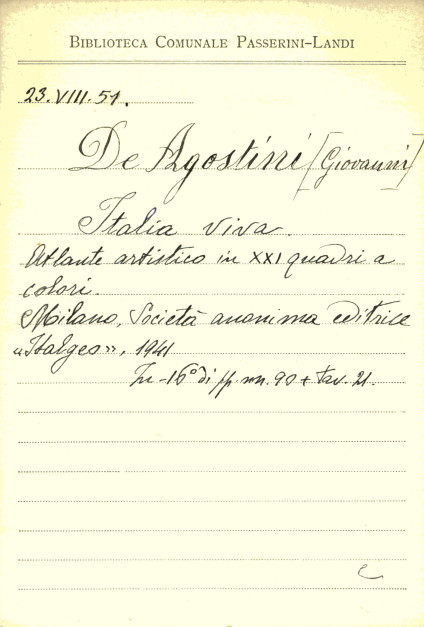 BIBLIOTECA COMUNALE PASSERINI-LANDI
23.VIII.51.
De Agostini [Giovanni]
Italia viva.
Atlante artistico in XXI quadri a
colori.
Milano, Società anonima editrice
«Italgeo», 1941
In-16° di pp. nn. 90 + tav. 21.
c